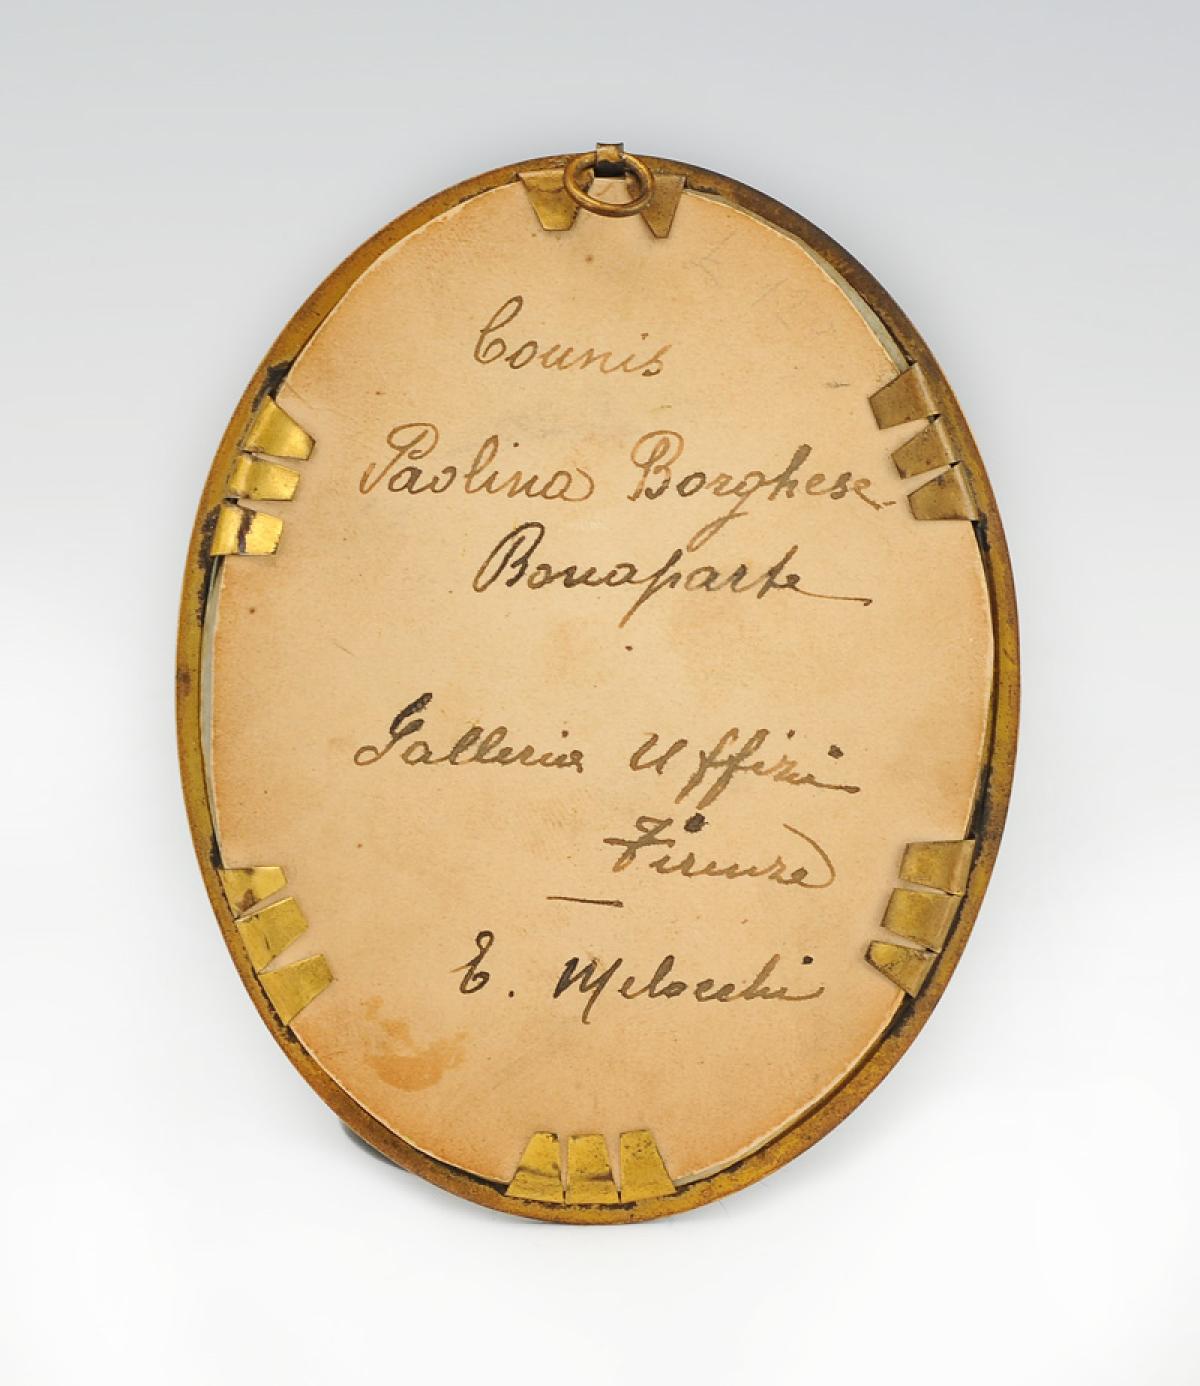 Counis
Paolina Borghese
Bonaparte
Galleria Uffizi
Firenze
E. Melocchi